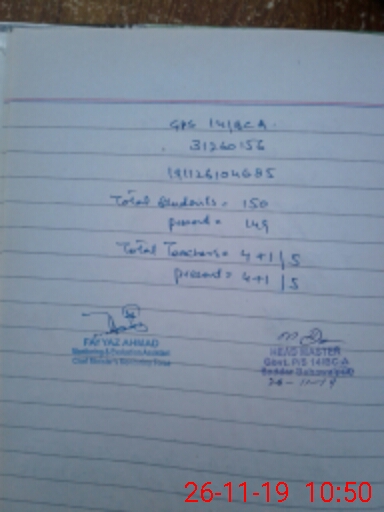 GPS 141/BC A.
31260156
191126104685
Total Students = 150
present = 149
Total Teachers = 4+1 | 5
present = 4+1 | 5
FAYYAZ AHMAD
Monitoring & Evaluation Assistant
Chief Minister's Monitoring Force
HEAD MASTER
Govt. P/S 141/BC-A
26-11-19
26-11-19 10:50